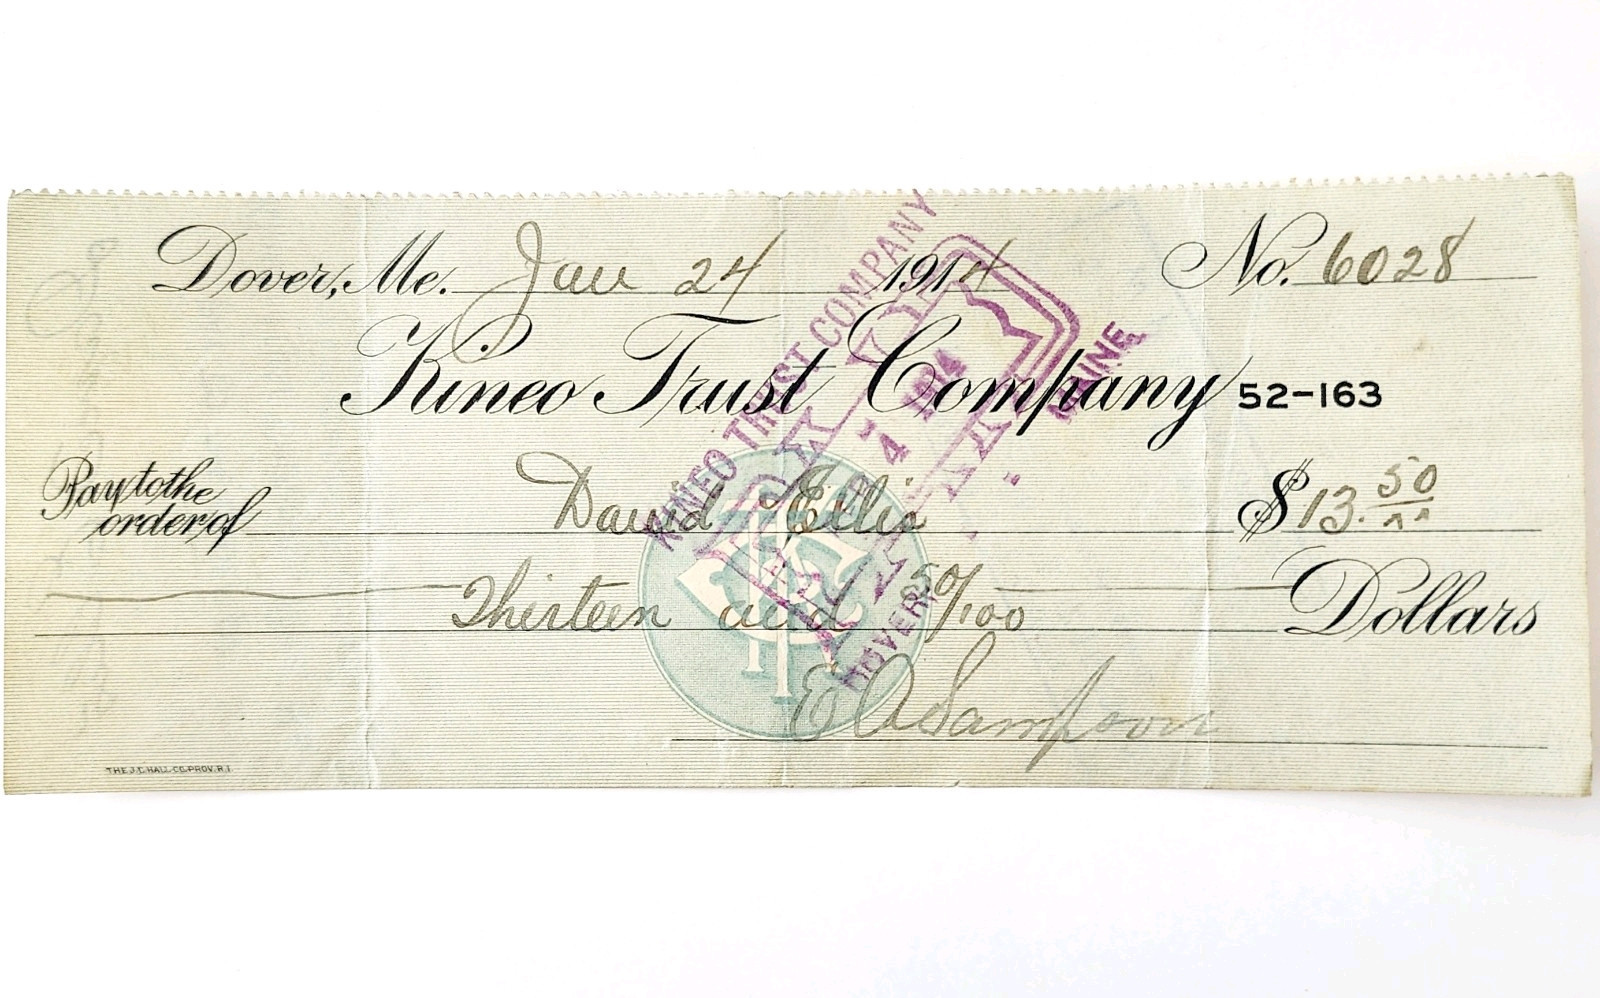 Dover, Me. Jan 24 1914 No. 6028
Kineo Trust Company 52-163
Pay to the order of David Ellis $13.50
Thirteen and 50/100 Dollars
E A Sampson
THE J.C. HALL CO. PROV. R.I.
KINEO TRUST COMPANY
4 1914
DOVER, MAINE